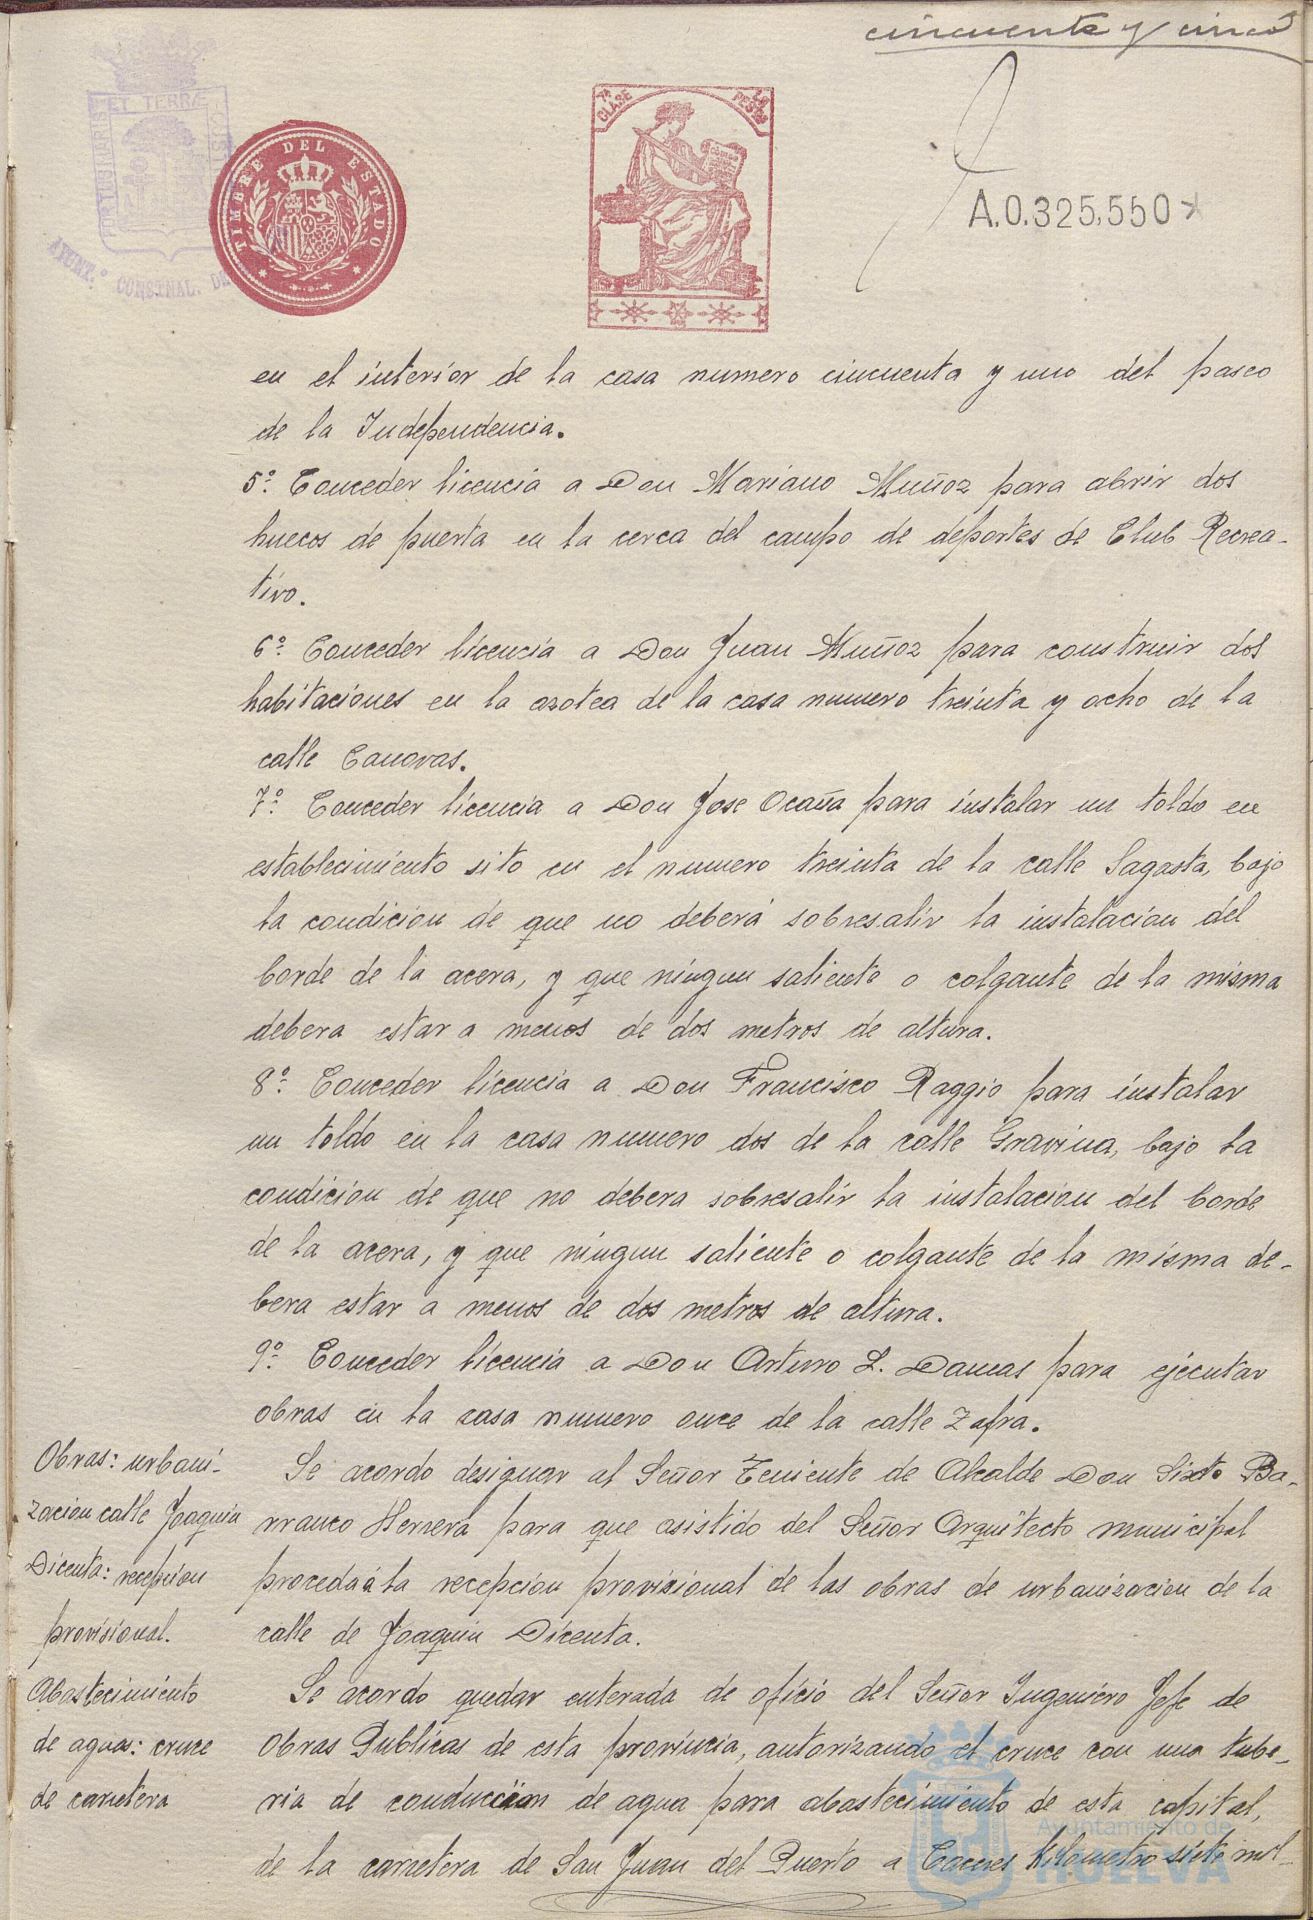 cincuenta y cinco
PORTUS MARIS ET TERRÆ CUSTODIA
AYUNT.º CONSTNAL. DE
TIMBRE DEL ESTADO
7ª CLASE
PESTAS
A.0.325,550*
en el interior de la casa numero cincuenta y uno del paseo
de la Independencia.
5º. Conceder licencia a Don Mariano Muñoz para abrir dos
huecos de puerta en la cerca del campo de deportes de Club Recrea-
tivo.
6º. Conceder licencia a Don Juan Muñoz para construir dos
habitaciones en la azotea de la casa numero treinta y ocho de la
calle Canovas.
7º. Conceder licencia a Don Jose Ocaña para instalar un toldo en
establecimiento sito en el numero treinta de la calle Sagasta, bajo
la condicion de que no deberá sobresalir la instalacion del
borde de la acera, y que ningun saliente o colgante de la misma
debera estar a menos de dos metros de altura.
8º. Conceder licencia a Don Francisco Raggio para instalar
un toldo en la casa numero dos de la calle Gravina, bajo la
condicion de que no debera sobresalir la instalacion del borde
de la acera, y que ningun saliente o colgante de la misma de-
bera estar a menos de dos metros de altura.
9º. Conceder licencia a Don Arturo L. Damas para ejecutar
obras en la casa numero once de la calle Zafra.
Obras: urbani-
zacion calle Joaquin
Dicenta: recepcion
provisional.
Se acordo designar al Señor Teniente de Alcalde Don Sixto Ba-
rranco Herrera para que asistido del Señor Arquitecto municipal
proceda á la recepcion provisional de las obras de urbanizacion de la
calle de Joaquin Dicenta.
Abastecimiento
de aguas: cruce
de carretera
Se acordo quedar enterada de oficio del Señor Ingeniero Jefe de
Obras Publicas de esta provincia, autorizando el cruce con una tube-
ria de conduccion de agua para abastecimiento de esta capital,
de la carretera de San Juan del Puerto a Caceres kilometro siete mil
Ayuntamiento de
HUELVA